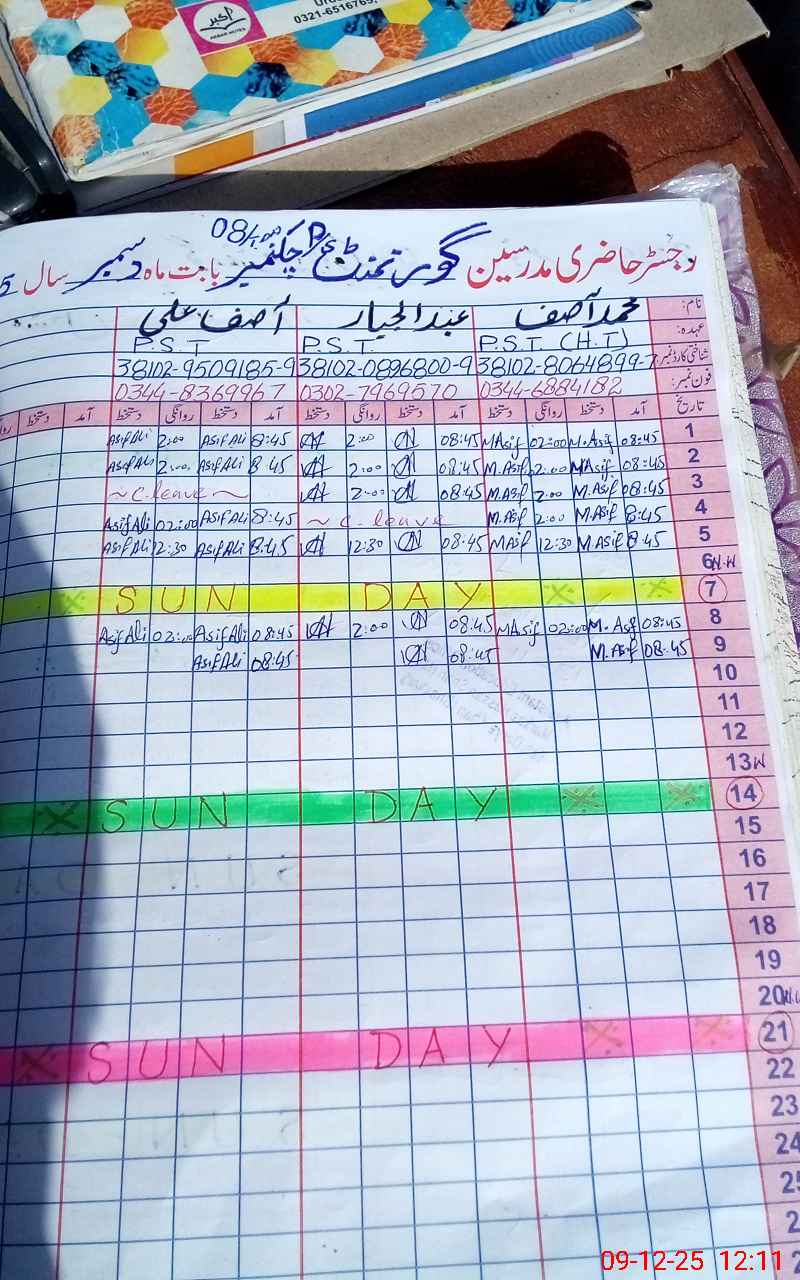 اکبر
AKBAR NOTES
0321-6516769,
رجسٹر حاضری مدرسین گورنمنٹ بابت ماہ دسمبر سال
نام: محمد آصف عبدالجبار آصف علی
عہدہ: P.S.T (H.T) P.S.T. P.S.T
شناختی کارڈ نمبر: 38102-8064899-7 38102-0896800-9 38102-9509185-9
فون نمبر: 0344-6884182 0302-7969570 0344-8369967
تاریخ آمد دستخط روانگی دستخط آمد دستخط روانگی دستخط آمد دستخط روانگی دستخط آمد دستخط
1 08:45 M.Asif 02:00 M.Asif 08:45 2:00 8:45 Asif Ali 2:00 Asif Ali
2 08:45 M.Asif 2:00 M.Asif 08:45 2:00 8:45 Asif Ali 2:00 Asif Ali
3 08:45 M.Asif 2:00 M.Asif 08:45 2:00 ~ C.leave ~
4 8:45 M.Asif 2:00 M.Asif ~ C.leave 8:45 Asif Ali 02:00 Asif Ali
5 8:45 M.Asif 12:30 M.Asif 08:45 12:30 8:45 Asif Ali 12:30 Asif Ali
6 W.W
7 SUN DAY
8 08:45 M.Asif 02:00 M.Asif 08:45 2:00 08:45 Asif Ali 02:00 Asif Ali
9 08:45 M.Asif 08:45 08:45 Asif Ali
10
11
12
13 W
14 SUN DAY
15
16
17
18
19
20
21 SUN DAY
22
23
24
09-12-25 12:11